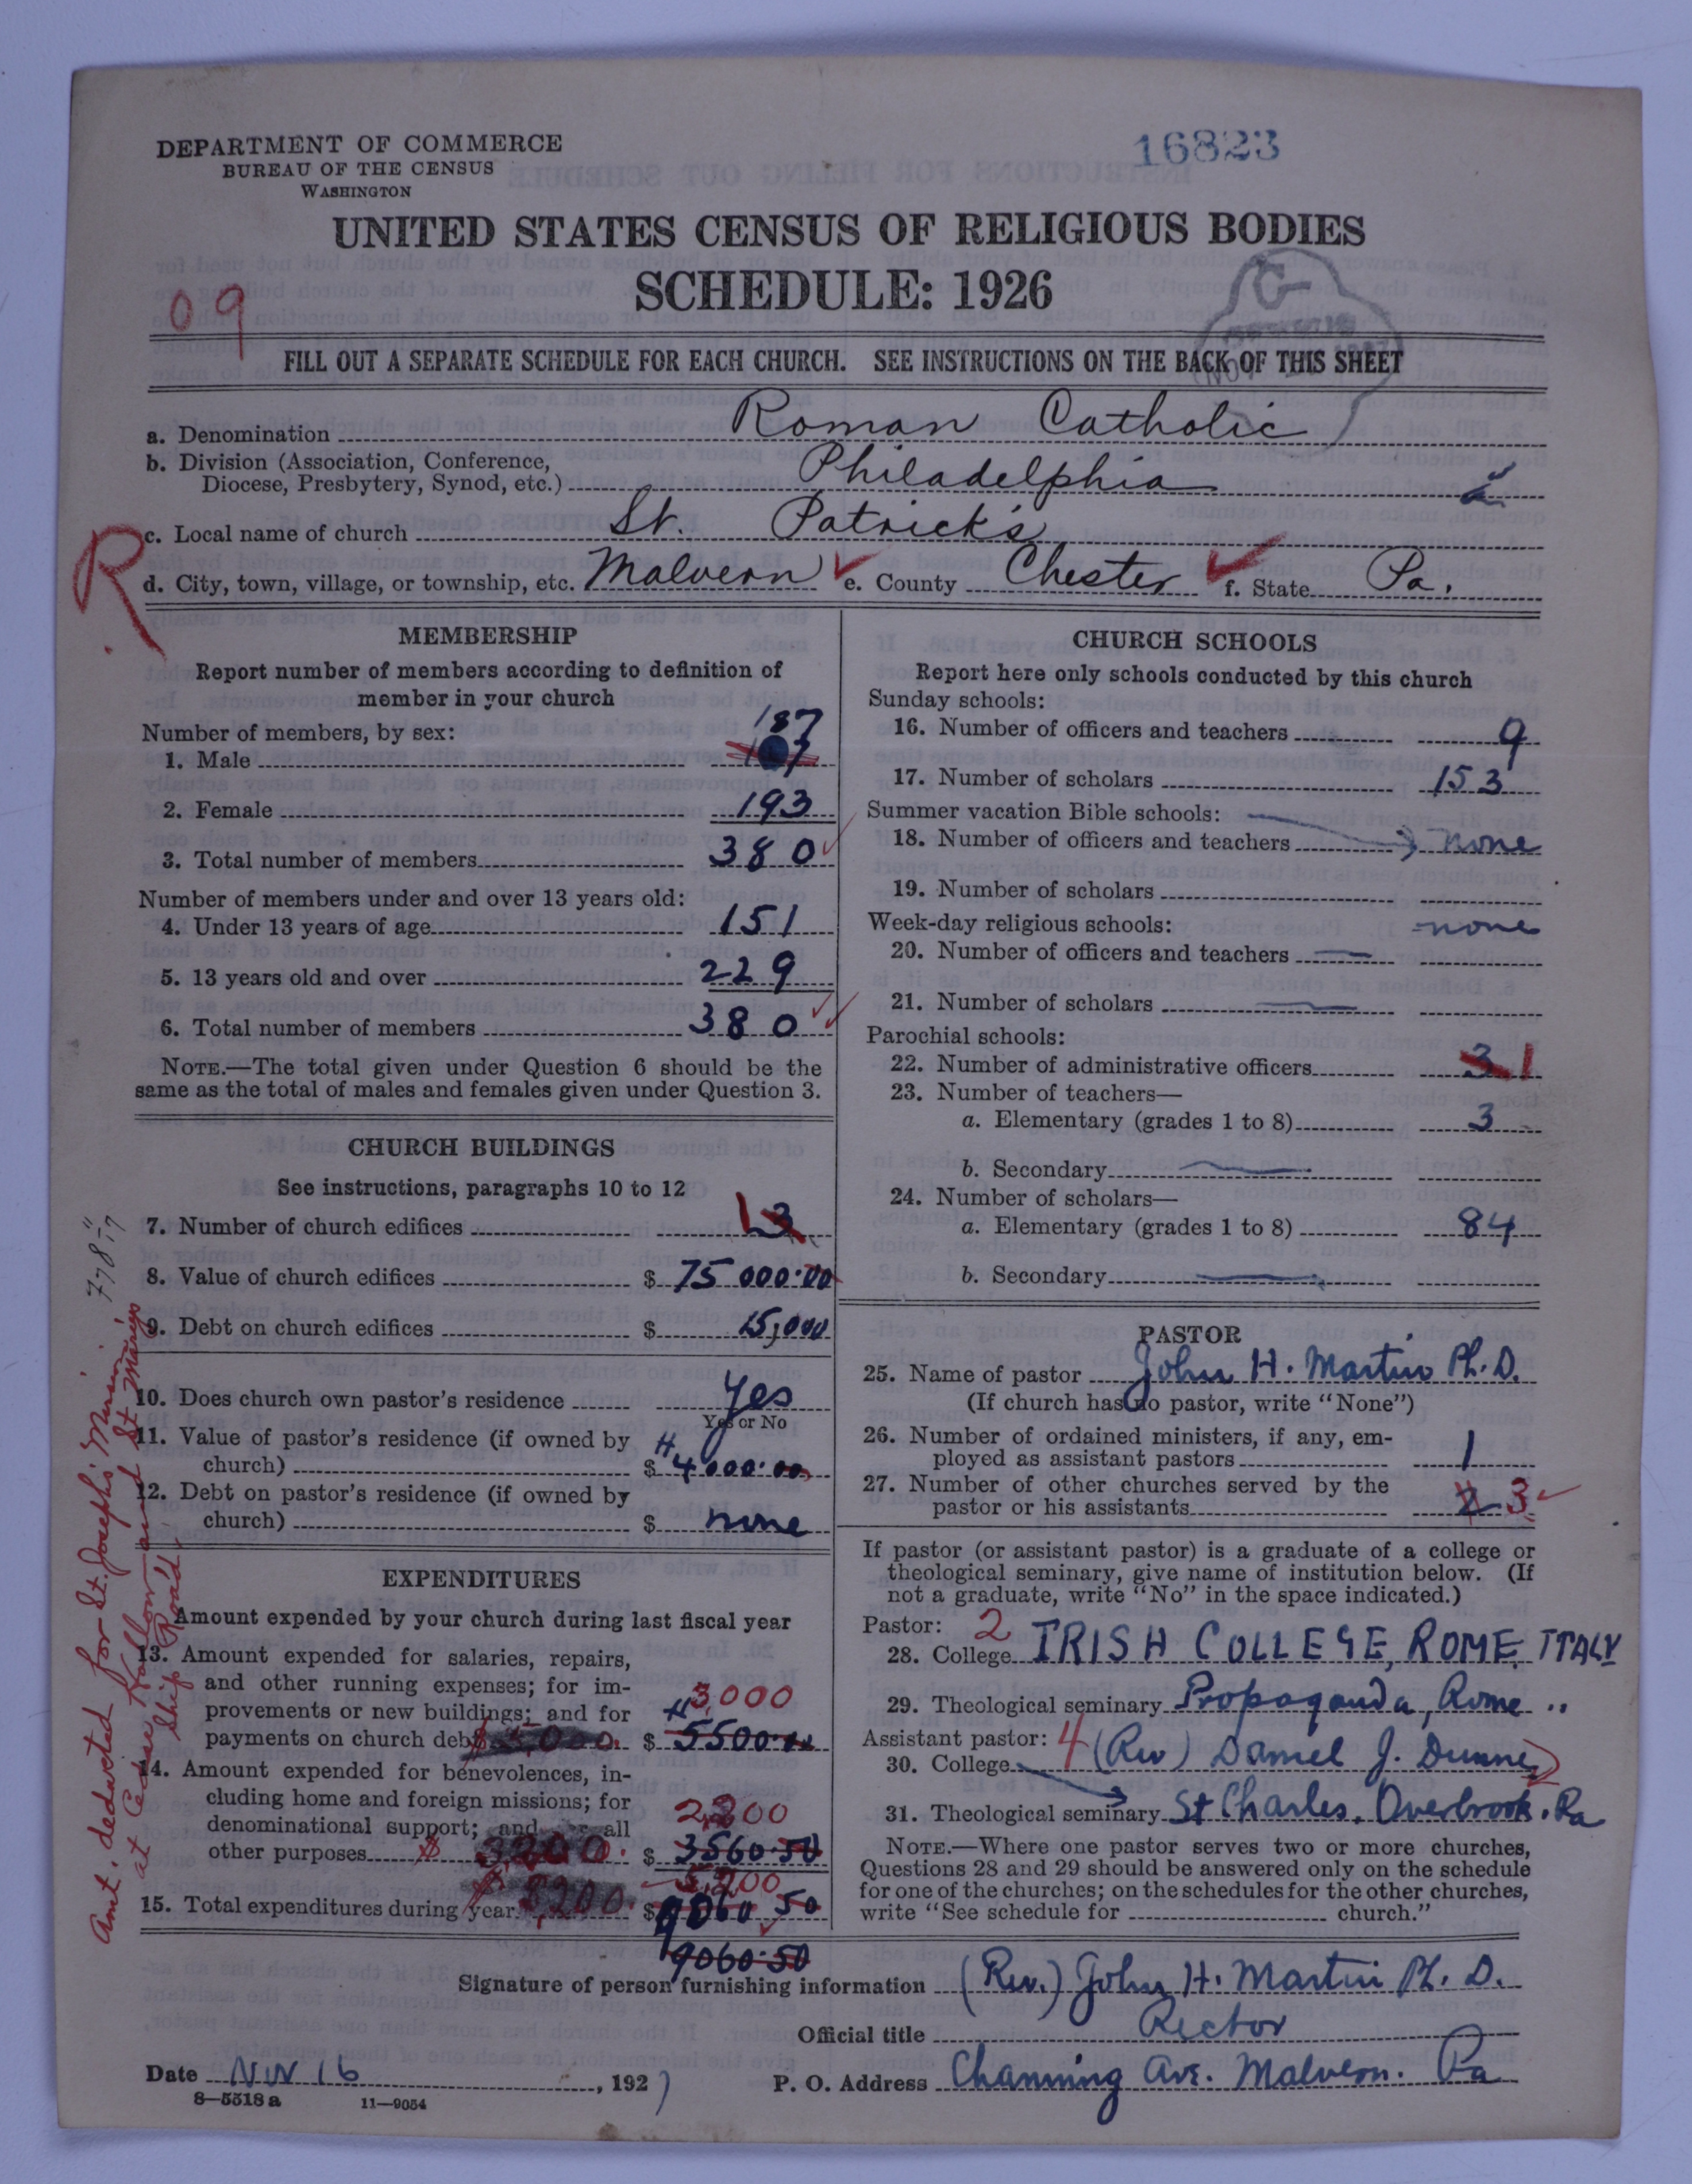 DEPARTMENT OF COMMERCE
BUREAU OF THE CENSUS
WASHINGTON
16823
UNITED STATES CENSUS OF RELIGIOUS BODIES
SCHEDULE: 1926
09
FILL OUT A SEPARATE SCHEDULE FOR EACH CHURCH. SEE INSTRUCTIONS ON THE BACK OF THIS SHEET
a. Denomination Roman Catholic
b. Division (Association, Conference,
Diocese, Presbytery, Synod, etc.) Philadelphia
c. Local name of church St. Patrick's
R
d. City, town, village, or township, etc. Malvern e. County Chester f. State Pa.
MEMBERSHIP
Report number of members according to definition of
member in your church
Number of members, by sex:
187
1. Male
2. Female 193
3. Total number of members 380
Number of members under and over 13 years old:
4. Under 13 years of age 151
5. 13 years old and over 229
6. Total number of members 380
NOTE.—The total given under Question 6 should be the
same as the total of males and females given under Question 3.
CHURCH BUILDINGS
See instructions, paragraphs 10 to 12
7. Number of church edifices 1 3
8. Value of church edifices $ 75 000.00
9. Debt on church edifices $ 15,000
10. Does church own pastor's residence Yes
Yes or No
11. Value of pastor's residence (if owned by
church) $ 4000.00
12. Debt on pastor's residence (if owned by
church) $ none
EXPENDITURES
Amount expended by your church during last fiscal year
13. Amount expended for salaries, repairs,
and other running expenses; for im-
provements or new buildings; and for 3,000
payments on church debt $ 5500.00
14. Amount expended for benevolences, in-
cluding home and foreign missions; for
denominational support; and for all 2,200
other purposes $ 2200. $ 3560.50
5,200
15. Total expenditures during year $ 5,200. $ 9060 50
9060.50
Amt. deducted for St. Joseph's Mission
at Cedar Hollow and St Mary's
Ship Road.
CHURCH SCHOOLS
Report here only schools conducted by this church
Sunday schools:
16. Number of officers and teachers 9
17. Number of scholars 153
Summer vacation Bible schools:
18. Number of officers and teachers none
19. Number of scholars
Week-day religious schools: none
20. Number of officers and teachers
21. Number of scholars
Parochial schools:
22. Number of administrative officers 3 1
23. Number of teachers—
a. Elementary (grades 1 to 8) 3
b. Secondary
24. Number of scholars—
a. Elementary (grades 1 to 8) 84
b. Secondary
PASTOR
25. Name of pastor John H. Martin Ph.D.
(If church has no pastor, write "None")
26. Number of ordained ministers, if any, em-
ployed as assistant pastors 1
27. Number of other churches served by the
pastor or his assistants 2 3
If pastor (or assistant pastor) is a graduate of a college or
theological seminary, give name of institution below. (If
not a graduate, write "No" in the space indicated.)
Pastor: 2
28. College IRISH COLLEGE, ROME, ITALY
29. Theological seminary Propaganda, Rome "
Assistant pastor: 4 (Rev) Daniel J. Dunne
30. College
31. Theological seminary St Charles, Overbrook. Pa
NOTE.—Where one pastor serves two or more churches,
Questions 28 and 29 should be answered only on the schedule
for one of the churches; on the schedules for the other churches,
write "See schedule for church."
Signature of person furnishing information (Rev.) John H. Martin Ph. D.
Official title Rector
Date Nov 16, 1927
P. O. Address Channing Ave. Malvern. Pa
8—5518a 11—9054